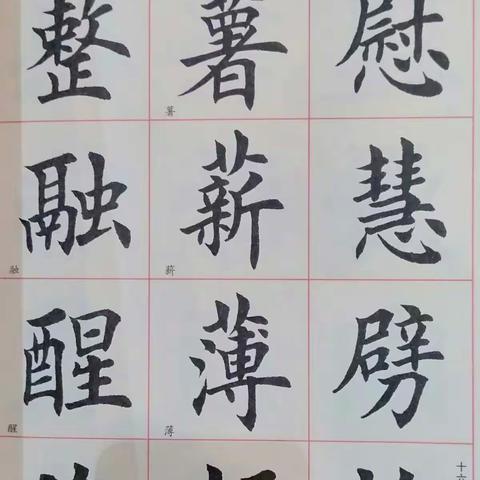 慰慧劈
十六
薯薪薄
薯
薪
薄
整融醒
融
醒